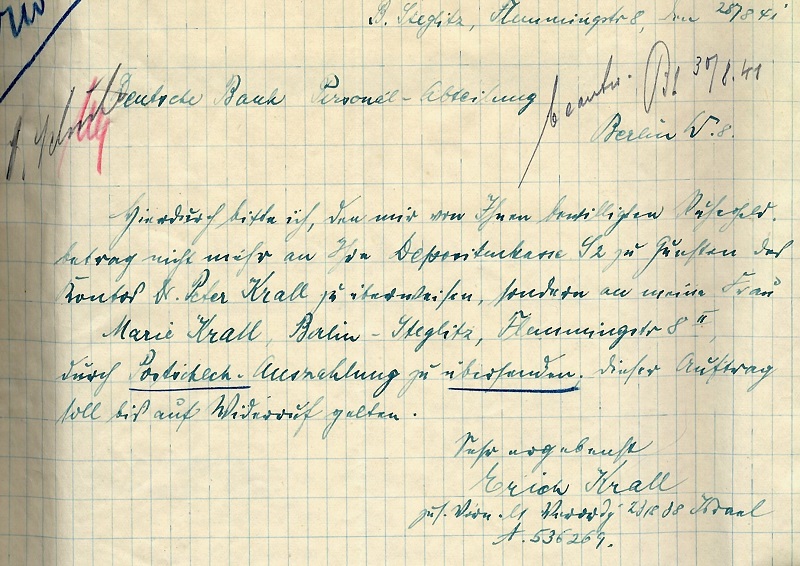 B. Steglitz, Flemmingstr 8, den 28/8 41
beantw. 30/8.41
Deutsche Bank Personal-Abteilung
Berlin W. 8.
Hierdurch bitte ich, den mir von Ihnen bewilligten Ruhegeld-
betrag nicht mehr an Ihre Depositenkasse S2 zu Gunsten des
Kontos Dr. Peter Krall zu überweisen, sondern an meine Frau
Marie Krall, Berlin-Steglitz, Flemmingstr 8 II,
durch Postscheck-Auszahlung zu übersenden. Dieser Auftrag
soll bis auf Widerruf gelten.
Sehr ergebenst
Erich Krall
zus. Vorn. lt Verordg 23/8 38 Israel
A. 536269.